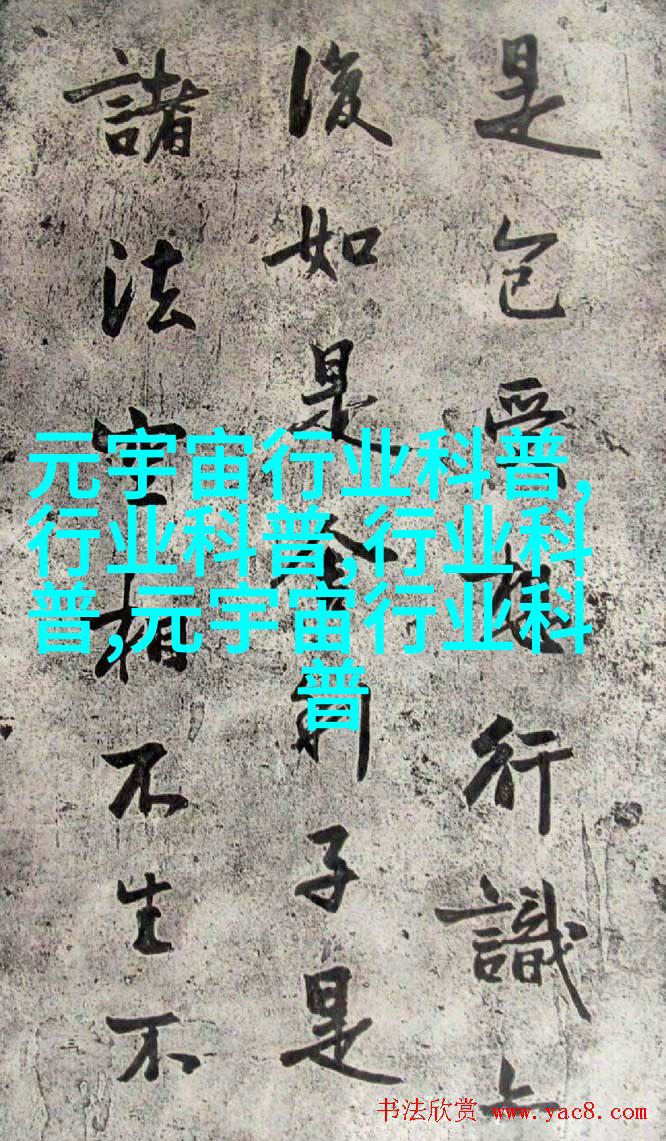 是色受想行識亦
復如是舍利子是
諸法空相不生不
元宇宙行业科普,
行业科普,行业科
普,元宇宙行业科
普
书法欣赏 www.yac8.com